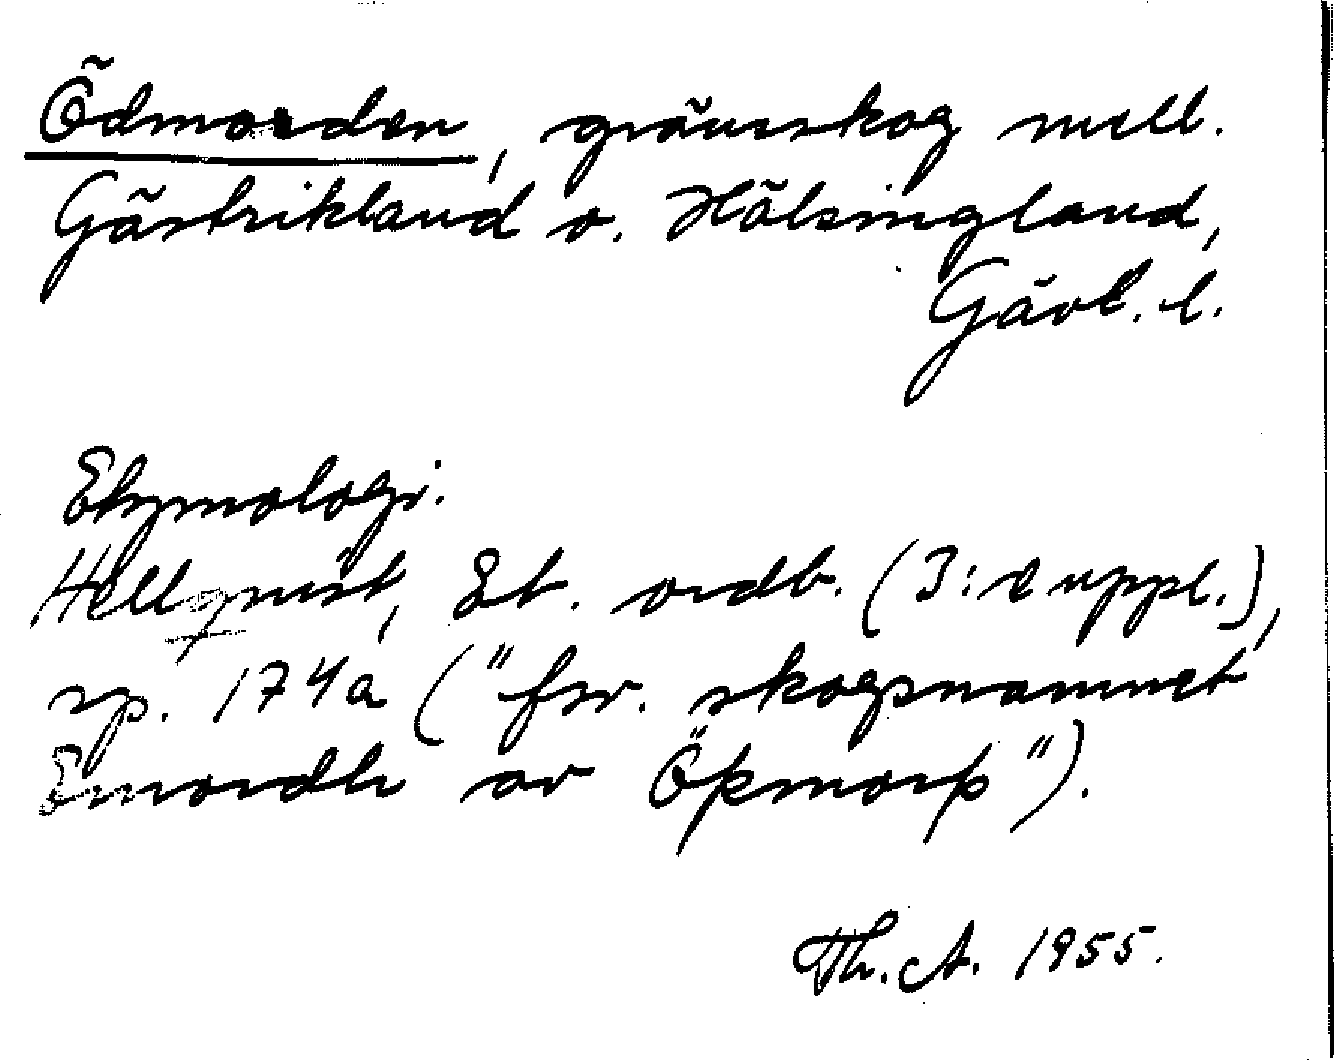 Ödmorden, gränsskog mell.
Gästrikland o. Hälsingland,
Gävl. l.
Etymologi.
Hellquist, Et. ordb. (3:e uppl.),
sp. 174a ("fsv. skogsnamnet
Ømordh av Öþmorþ").
Th. A. 1955.